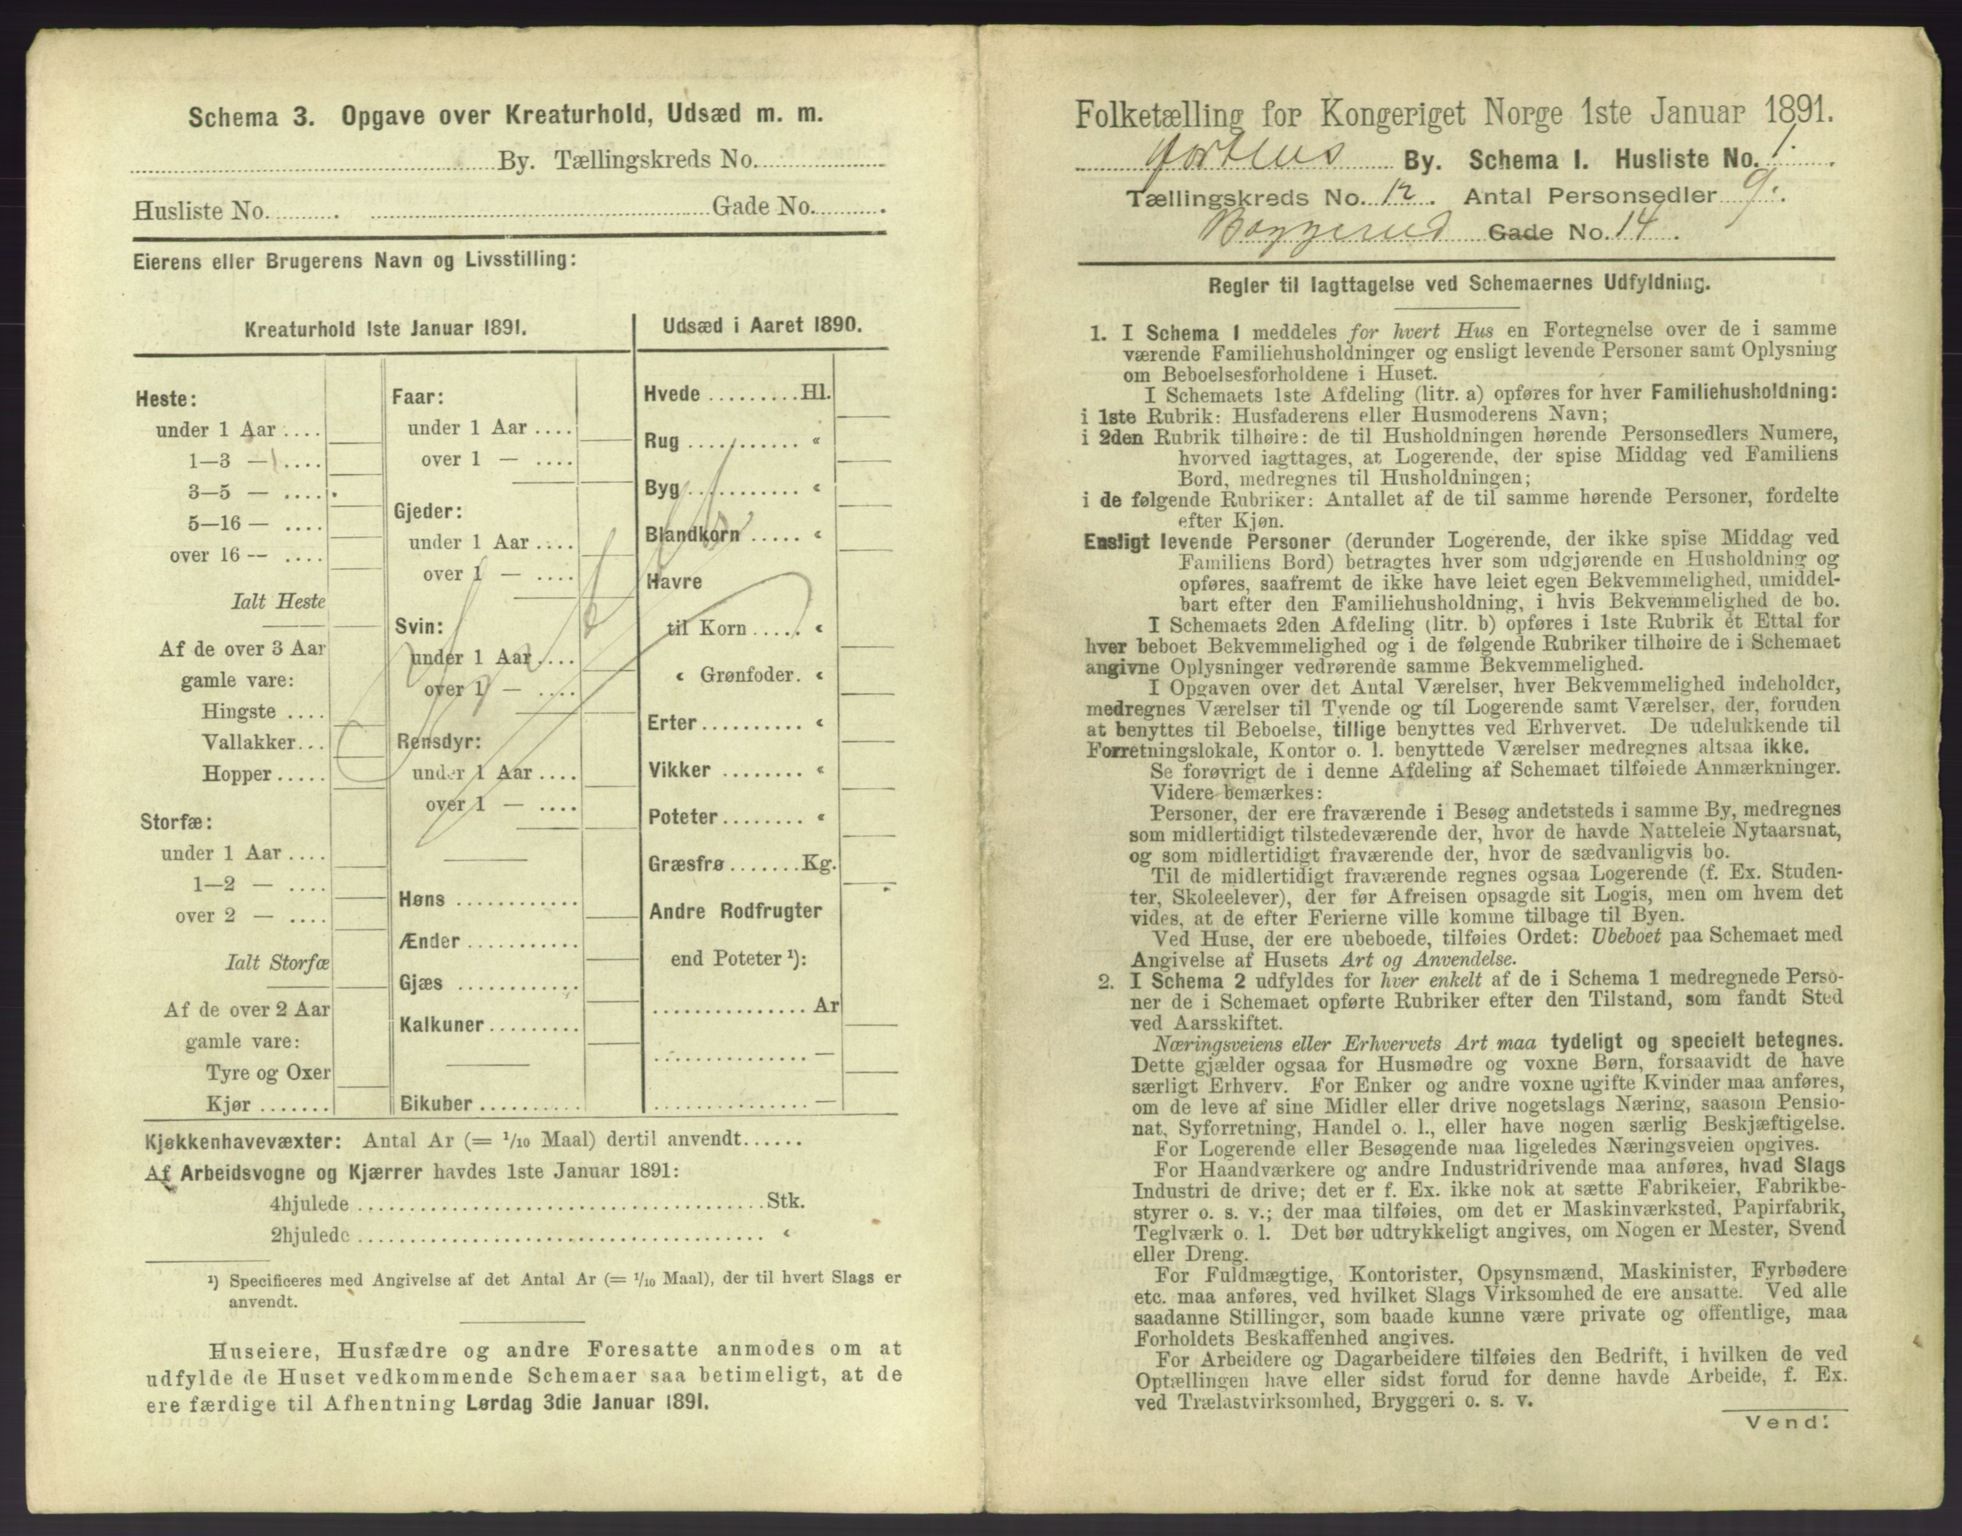 Schema 3. Opgave over Kreaturhold, Udsæd m. m.
By. Tællingskreds No.
Husliste No. Gade No.
Eierens eller Brugerens Navn og Livsstilling:
Kreaturhold 1ste Januar 1891.
Heste:
under 1 Aar
1—3 —
3—5 —
5—16 —
over 16 —
Ialt Heste
Af de over 3 Aar
gamle vare:
Hingste
Vallakker
Hopper
Storfæ:
under 1 Aar
1—2 —
over 2 —
Ialt Storfæ
Af de over 2 Aar
gamle vare:
Tyre og Oxer
Kjør
Faar:
under 1 Aar
over 1 —
Gjeder:
under 1 Aar
over 1 —
Svin:
under 1 Aar
over 1 —
Rensdyr:
under 1 Aar
over 1 —
Høns
Ænder
Gjæs
Kalkuner
Bikuber
Udsæd i Aaret 1890.
Hvede Hl.
Rug «
Byg «
Blandkorn «
Havre
til Korn «
« Grønfoder. «
Erter «
Vikker «
Poteter «
Græsfrø Kg.
Andre Rodfrugter
end Poteter ¹):
Ar
—
—
Kjøkkenhavevæxter: Antal Ar (= 1/10 Maal) dertil anvendt
Af Arbeidsvogne og Kjærrer havdes 1ste Januar 1891:
4hjulede Stk.
2hjulede «
¹) Specificeres med Angivelse af det Antal Ar (= 1/10 Maal), der til hvert Slags er
anvendt.
Huseiere, Husfædre og andre Foresatte anmodes om at
udfylde de Huset vedkommende Schemaer saa betimeligt, at de
ere færdige til Afhentning Lørdag 3die Januar 1891.
Folketælling for Kongeriget Norge 1ste Januar 1891.
Hortens By. Schema I. Husliste No. 1.
Tællingskreds No. 12. Antal Personsedler 9.
Baggerud Gade No. 14.
Regler til Iagttagelse ved Schemaernes Udfyldning.
1. I Schema 1 meddeles for hvert Hus en Fortegnelse over de i samme
værende Familiehusholdninger og ensligt levende Personer samt Oplysning
om Beboelsesforholdene i Huset.
I Schemaets 1ste Afdeling (litr. a) opføres for hver Familiehusholdning:
i 1ste Rubrik: Husfaderens eller Husmoderens Navn;
i 2den Rubrik tilhøire: de til Husholdningen hørende Personsedlers Numere,
hvorved iagttages, at Logerende, der spise Middag ved Familiens
Bord, medregnes til Husholdningen;
i de følgende Rubriker: Antallet af de til samme hørende Personer, fordelte
efter Kjøn.
Ensligt levende Personer (derunder Logerende, der ikke spise Middag ved
Familiens Bord) betragtes hver som udgjørende en Husholdning og
opføres, saafremt de ikke have leiet egen Bekvemmelighed, umiddel-
bart efter den Familiehusholdning, i hvis Bekvemmelighed de bo.
I Schemaets 2den Afdeling (litr. b) opføres i 1ste Rubrik ét Ettal for
hver beboet Bekvemmelighed og i de følgende Rubriker tilhøire de i Schemaet
angivne Oplysninger vedrørende samme Bekvemmelighed.
I Opgaven over det Antal Værelser, hver Bekvemmelighed indeholder,
medregnes Værelser til Tyende og til Logerende samt Værelser, der, foruden
at benyttes til Beboelse, tillige benyttes ved Erhvervet. De udelukkende til
Forretningslokale, Kontor o. l. benyttede Værelser medregnes altsaa ikke.
Se forøvrigt de i denne Afdeling af Schemaet tilføiede Anmærkninger.
Videre bemærkes:
Personer, der ere fraværende i Besøg andetsteds i samme By, medregnes
som midlertidigt tilstedeværende der, hvor de havde Natteleie Nytaarsnat,
og som midlertidigt fraværende der, hvor de sædvanligvis bo.
Til de midlertidigt fraværende regnes ogsaa Logerende (f. Ex. Studen-
ter, Skoleelever), der før Afreisen opsagde sit Logis, men om hvem det
vides, at de efter Ferierne ville komme tilbage til Byen.
Ved Huse, der ere ubeboede, tilføies Ordet: Ubeboet paa Schemaet med
Angivelse af Husets Art og Anvendelse.
2. I Schema 2 udfyldes for hver enkelt af de i Schema 1 medregnede Perso-
ner de i Schemaet opførte Rubriker efter den Tilstand, som fandt Sted
ved Aarsskiftet.
Næringsveiens eller Erhvervets Art maa tydeligt og specielt betegnes.
Dette gjælder ogsaa for Husmødre og voxne Børn, forsaavidt de have
særligt Erhverv. For Enker og andre voxne ugifte Kvinder maa anføres,
om de leve af sine Midler eller drive nogetslags Næring, saasom Pensio-
nat, Syforretning, Handel o. l., eller have nogen særlig Beskjæftigelse.
For Logerende eller Besøgende maa ligeledes Næringsveien opgives.
For Haandværkere og andre Industridrivende maa anføres, hvad Slags
Industri de drive; det er f. Ex. ikke nok at sætte Fabrikeier, Fabrikbe-
styrer o. s. v.; der maa tilføies, om det er Maskinværksted, Papirfabrik,
Teglværk o. l. Det bør udtrykkeligt angives, om Nogen er Mester, Svend
eller Dreng.
For Fuldmægtige, Kontorister, Opsynsmænd, Maskinister, Fyrbødere
etc. maa anføres, ved hvilket Slags Virksomhed de ere ansatte. Ved alle
saadanne Stillinger, som baade kunne være private og offentlige, maa
Forholdets Beskaffenhed angives.
For Arbeidere og Dagarbeidere tilføies den Bedrift, i hvilken de ved
Optællingen have eller sidst forud for denne havde Arbeide, f. Ex.
ved Trælastvirksomhed, Bryggeri o. s. v.
Vend!